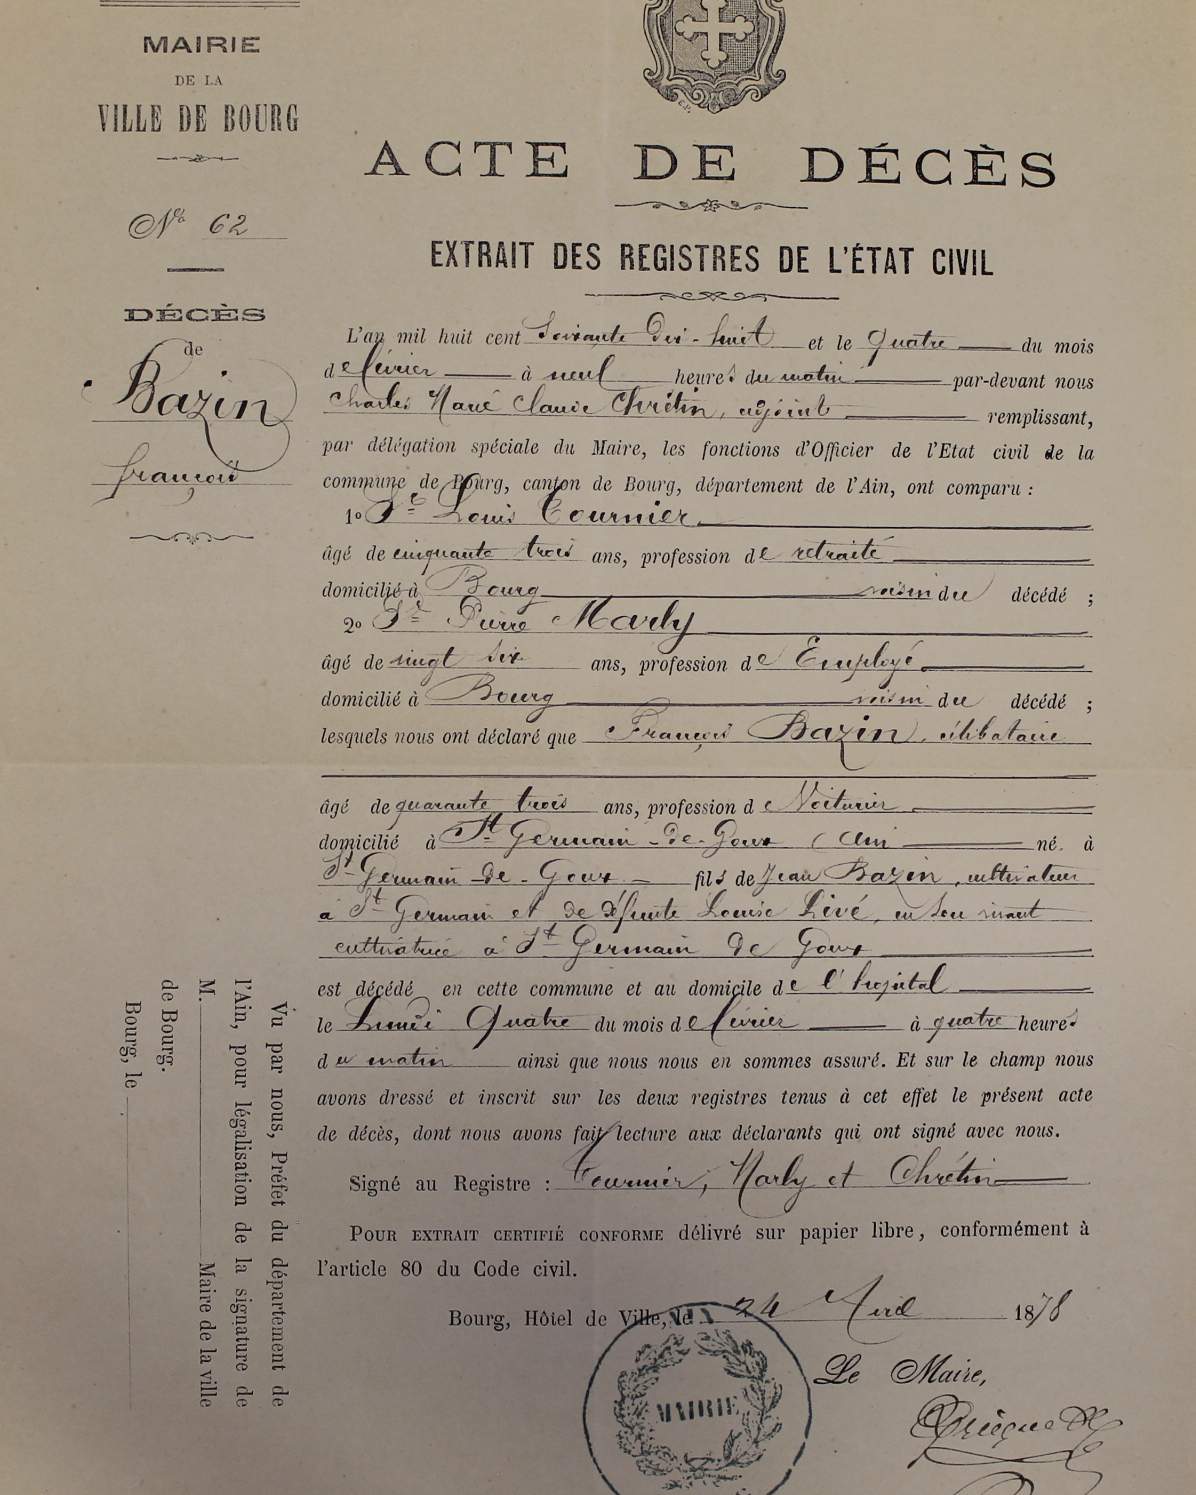 MAIRIE
DE LA
VILLE DE BOURG
No 62
DÉCÈS
de
Bazin
françois
ACTE DE DÉCÈS
EXTRAIT DES REGISTRES DE L'ÉTAT CIVIL
L'an mil huit cent Soixante Dix-huit et le quatre du mois
de février à neuf heures du matin par-devant nous
Charles Claude Chrétin, adjoint remplissant,
par délégation spéciale du Maire, les fonctions d'Officier de l'Etat civil de la
commune de Bourg, canton de Bourg, département de l'Ain, ont comparu :
1o Sr Louis Tournier
âgé de cinquante trois ans, profession de retraité
domicilié à Bourg voisin du décédé ;
2o Sr Pierre Marly
âgé de vingt six ans, profession de Employé
domicilié à Bourg voisin du décédé ;
lesquels nous ont déclaré que François Bazin, célibataire
âgé de quarante trois ans, profession de Voiturier
domicilié à St Germain-de-Joux (Ain né à
St Germain-de-Joux fils de Jean Bazin, cultivateur
à St Germain et de défunte Louise Livé, en son vivant
cultivatrice à St Germain de Joux
est décédé en cette commune et au domicile de l'hopital
le Lundi Quatre du mois de février à quatre heures
du matin ainsi que nous nous en sommes assuré. Et sur le champ nous
avons dressé et inscrit sur les deux registres tenus à cet effet le présent acte
de décès, dont nous avons fait lecture aux déclarants qui ont signé avec nous.
Signé au Registre : Tournier, Marly et Chrétin
POUR EXTRAIT CERTIFIÉ CONFORME délivré sur papier libre, conformément à
l'article 80 du Code civil.
Bourg, Hôtel de Ville, le 24 Avril 1878
Le Maire,
MAIRIE
Vu par nous, Préfet du département de
l'Ain, pour légalisation de la signature de
M. Maire de la ville
de Bourg.
Bourg, le